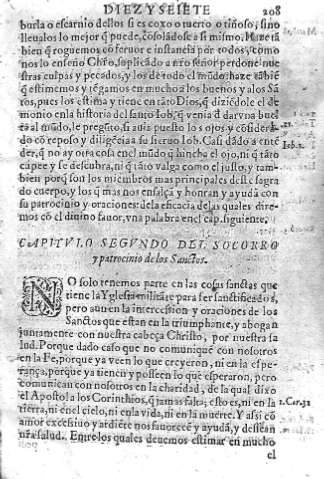 DIEZYSEIETE 208
burla o escarnio dellos si es coxo o tuerto o tiñoso, sino
lleuālos lo mejor q̃ puede, cōsolādose a si mismo. Haze tā
bien q̃ roguemos cō feruor e instancia por todos, como
nos lo enseño Chrō, suplicādo a nr̃o señor perdone nue
stras culpas y pecados, y los de todo el mūdo: haze tābiē
q̃ estimemos y tēgamos en mucho a los buenos y a los Sā
ros, pues los estima y tiene en tāto Dios, q̃ diziēdole el de
monio en la historia del santo Iob, q̃ venia d̃ dar vna buel
ta al mūdo, le pregūto, si auia puesto los ojos y cōsidera
do cō reposo y diligēcia a su sieruo Iob. Casi dādo a entē
der, q̃ no ay otra cosa en el mūdo q̃ hincha el ojo, ni q̃ tāto
campee y se descubra, ni q̃ tāto valga como el justo, y tam
bien porq̃ son los miembros mas principales deste sagra
do cuerpo, y los q̃ mas nos ensalça y honran y ayudā con
su patrocinio y oraciones: de la eficacia de las quales dire-
mos cō el diuino fauor, vna palabra en el cap. siguiente.
Iob. 1.
CAPITVLO SEGVNDO DEL SOCORRO
y patrocinio de los Sanctos.
NO solo tenemos parte en las cosas sanctas que
tiene la Yglesia militāte para ser sanctificados,
pero aun en la intercession y oraciones de los
Sanctos que estan en la triumphante, y abogan
juntamente con nuestra cabeça Christo, por nuestra sa
lud. Porque dado caso que no comunique con nosotros
en la Fe, porque ya veen lo que creyeron, ni en la espe-
rança, porque ya tienen y posseen lo que esperaron, pero
comunican con nosotros en la charidad, de la qual dixo
el Apostol a los Corinthios, q̃ jamas falta: esto es, ni en la
tierra, ni en el cielo, ni en la vida, ni en la muerte. Y assi cō
amor excessiuo y ardiēte nos fauorecē y ayudā, y desean
nr̃a salud. Entre los quales deuemos estimar en mucho
1. Cor. 13
el